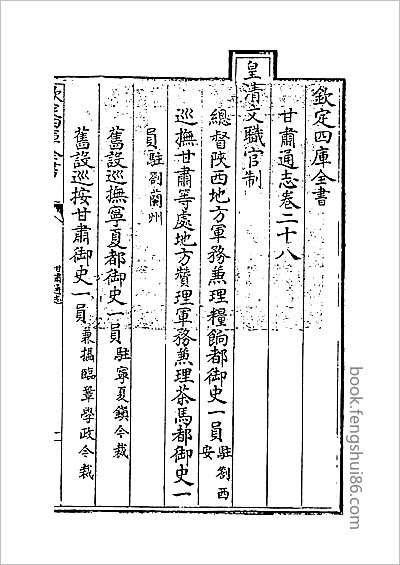 欽定四庫全書
甘肅通志卷二十八
皇清文職官制
總督陝西地方軍務兼理糧餉都御史一員駐劄西安
巡撫甘肅等處地方贊理軍務兼理茶馬都御史一
員駐劄蘭州
舊設巡撫寧夏都御史一員駐寧夏鎮今裁
舊設巡按甘肅御史一員兼攝臨鞏學政今裁
甘肅通志
book.fengshui86.com